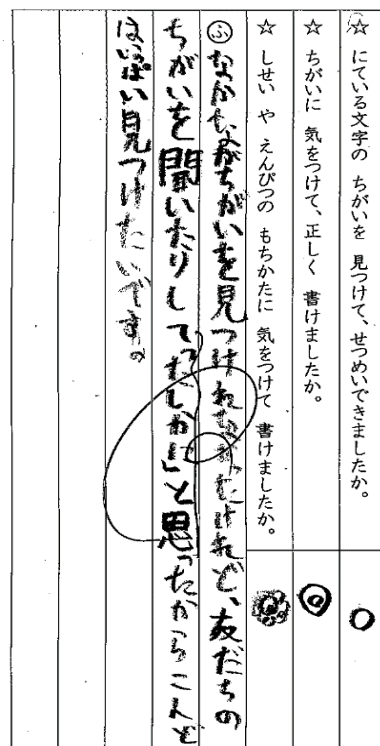 ☆ にている文字の ちがいを 見つけて、せつめいできましたか。
☆ ちがいに 気をつけて、正しく 書けましたか。
☆ しせい や えんぴつの もちかたに 気をつけて 書けましたか。
ふなかなかちがいを見つけれなかったけれど、友だちの
ちがいを聞いたりして「たしかに」と思ったからこんど
はいっぱい見つけたいです。